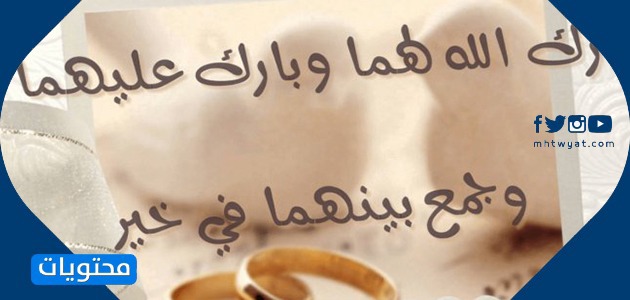 رك الله لهما وبارك عليهما
وجمع بينهما في خير
mhtwyat.com
محتويات